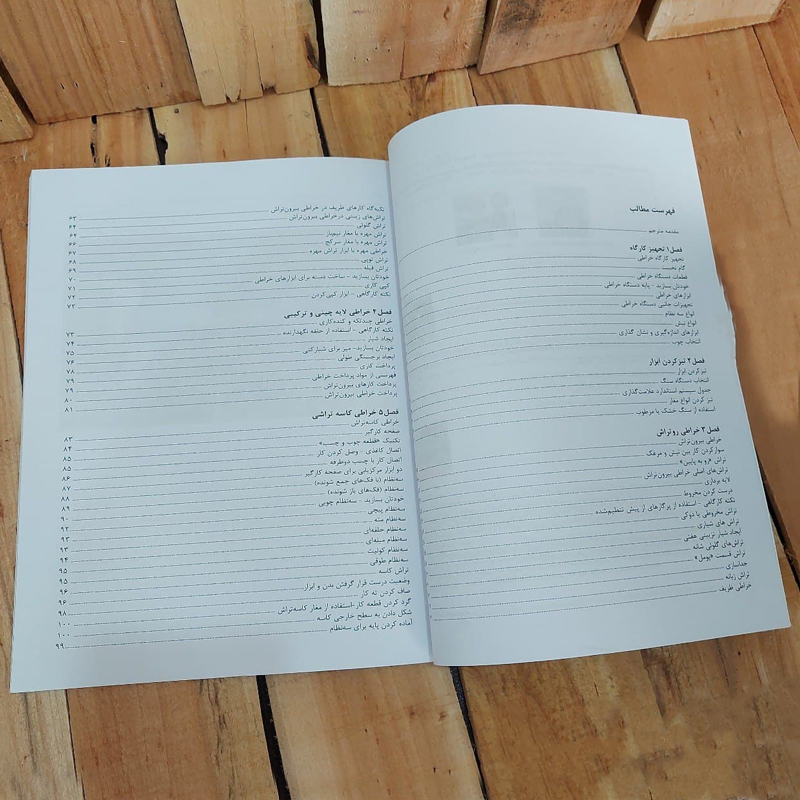 فهرست مطالب
مقدمه مترجم
فصل ۱ تجهیز کارگاه
تجهیز کارگاه خراطی
گام نخست
قطعات دستگاه خراطی
خودتان بسازید - پایه دستگاه خراطی
ابزارهای خراطی
تجهیزات جانبی دستگاه خراطی
انواع سه نظام
انواع نیش
ابزارهای اندازه‌گیری و نشان گذاری
انتخاب چوب
فصل ۲ تیزکردن ابزار
تیزکردن ابزار
انتخاب دستگاه سنگ
جدول سیستم استاندارد علامت‌گذاری
تیز کردن انواع مغار
استفاده از سنگ خشک یا مرطوب
فصل ۳ خراطی روتراش
خراطی بیرون‌تراش
سوارکردن کار بین نیش و مرغک
تراش «رو به پایین»
تراش‌های اصلی خراطی بیرون‌تراش
لایه برداری
درست کردن مخروط
نکته کارگاهی - استفاده از پرگارهای از پیش تنظیم‌شده
تراش مخروطی یا دوکی
تراش های شیاری
ایجاد شیار تزیینی عمقی
تراش‌های گلوئی شانه
تراش قسمت «پومل»
جداسازی
تراش زبانه
خراطی ظریف
تکیه‌گاه کارهای ظریف در خراطی بیرون‌تراش
تراش‌های زینتی درخراطی بیرون‌تراش ۶۳
تراش گلوئی ۶۴
تراش مهره با مغار نیم‌باز ۶۴
تراش مهره با مغار سرکج ۶۶
خراطی مهره با ابزار تراش مهره ۶۷
تراش توپی ۶۸
تراش قبله ۶۹
خودتان بسازید - ساخت دسته برای ابزارهای خراطی ۷۰
کپی کاری ۷۱
نکته کارگاهی - ابزار کپی‌کردن ۷۲
۷۲
فصل ۴ خراطی لایه چینی و ترکیبی
خراطی چندتکه و کنده‌کاری
نکته کارگاهی - استفاده از حلقه نگهدارنده ۷۳
ایجاد شیار ۷۴
خودتان بسازید- میز برای شیارکنی ۷۵
ایجاد برجستگی طولی ۷۶
پرداخت کاری ۷۸
فهرستی از مواد پرداخت خراطی ۷۹
پرداخت کارهای بیرون‌تراش ۷۹
پرداخت خراطی بیرون‌تراش ۸۰
۸۱
فصل ۵ خراطی کاسه تراشی
خراطی کاسه‌تراش
صفحه کارگیر ۸۳
تکنیک «قطعه چوب و چسب» ۸۴
اتصال کاغذی - وصل کردن کار ۸۵
اتصال کار با چسب دوطرفه ۸۵
دو ابزار مرکزیابی برای صفحه کارگیر ۸۶
سه‌نظام (با فک‌های جمع شونده) ۸۷
سه‌نظام (فک‌های باز شونده) ۸۸
خودتان بسازید - سه‌نظام چوبی ۸۹
سه‌نظام پیچی ۹۰
سه‌نظام مته ۹۲
سه‌نظام حلقه‌ای ۹۳
سه‌نظام میله‌ای ۹۳
سه‌نظام کولیت ۹۴
سه‌نظام طوقی ۹۵
تراش کاسه ۹۵
وضعیت درست قرار گرفتن بدن و ابزار ۹۶
صاف کردن ته کار ۹۶
گرد کردن قطعه کار-استفاده از مغار کاسه‌تراش ۹۸
شکل دادن به سطح خارجی کاسه ۱۰۰
آماده کردن پایه برای سه‌نظام ۱۰۰
۹۹